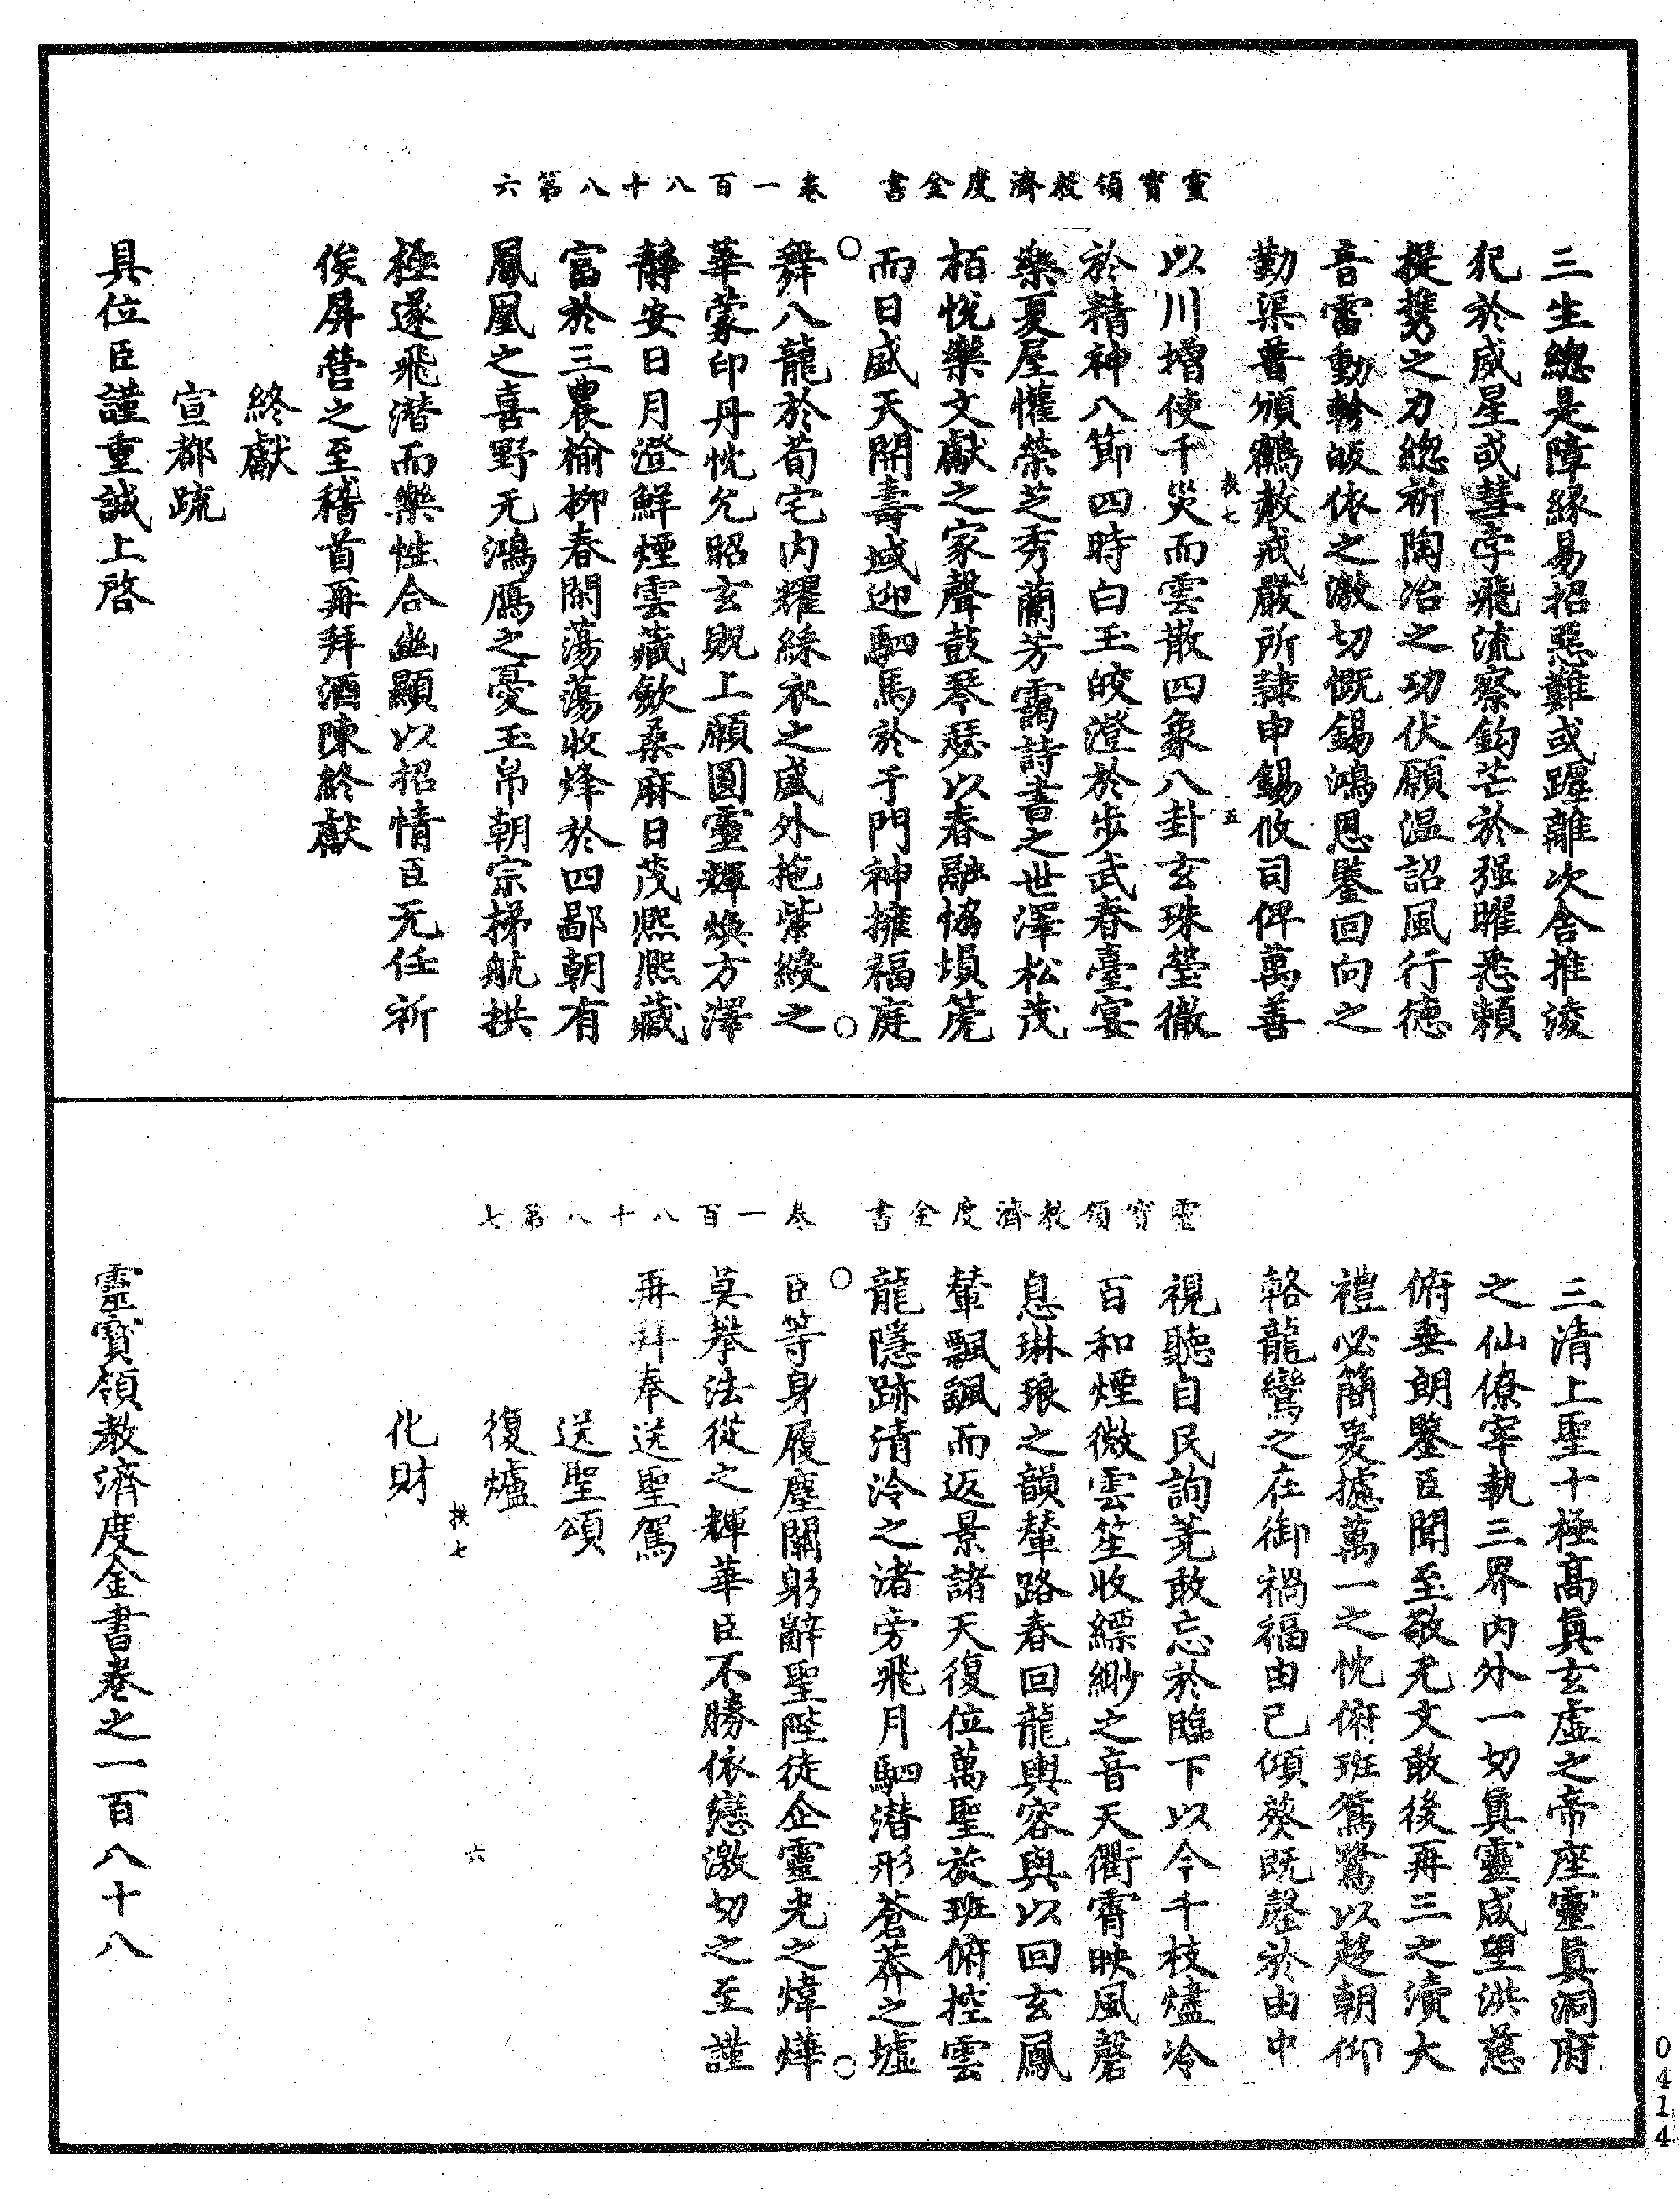 靈寶領教濟度金書　卷一百八十八第六
三生總是障緣易招惡難或躔離次舍推淩
犯於威星或彗孛飛流察鈎芒於强曜悉賴
提携之力總祈陶冶之功伏願温詔風行德
音雷動軫皈依之激切慨錫鴻恩鑒回向之
勤渠普頒鶴赦戒嚴所隸申錫攸司俾萬善
扶七　五
以川增使千災而雲散四象八卦玄珠瑩徹
於精神八節四時白玉皎澄於步武春臺宴
樂夏屋懽榮芝秀蘭芳靄詩書之世澤松茂
栢悅樂文獻之家聲鼓琴瑟以春融恊塤箎
而日盛天開壽域迎駟馬於于門神擁福庭
舞八龍於荀宅内耀綵衣之盛外拖紫綬之
華蒙印丹忱允昭玄貺上願圓靈輝煥方澤
靜安日月澄鮮煙雲藏斂桑麻日茂熈熈藏
富於三農榆柳春閑蕩蕩收烽於四鄙朝有
鳳凰之喜野无鴻鴈之憂玉帛朝宗梯航拱
極遂飛潛而樂性合幽顯以招情臣无任祈
俟屏營之至稽首再拜酒陳終獻
終獻
宣都疏
具位臣謹重誠上啓
靈寶領教濟度金書　卷一百八十八第七
三清上聖十極高眞玄虛之帝座靈眞洞府
之仙僚宰執三界内外一切眞靈咸望洪慈
俯垂朗鑒臣聞至敬无文敢後再三之瀆大
禮必簡爰攄萬一之忱俯班鴛鷺以趍朝仰
輅龍鸞之在御禍福由己傾葵既罄於由中
視聽自民詢蕘敢忘於臨下以今千枝燼冷
百和煙微雲笙收縹緲之音天衢霄映風磬
息琳琅之韻輦路春回龍輿容與以回玄鳳
輦飄颻而返景諸天復位萬聖旋班俯控雲
龍隱跡清泠之渚旁飛月駟潛形蒼莽之墟
臣等身履塵關躬辭聖陛徒企靈光之煒燁
莫攀法從之輝華臣不勝依戀激切之至謹
再拜奉送聖駕
送聖頌
復爐
扶七　六
化財
靈寶領教濟度金書卷之一百八十八
0414